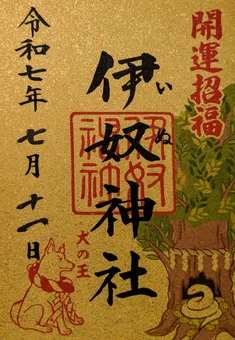 開運招福
伊奴神社
いぬ
犬の王
令和七年 七月 十一日